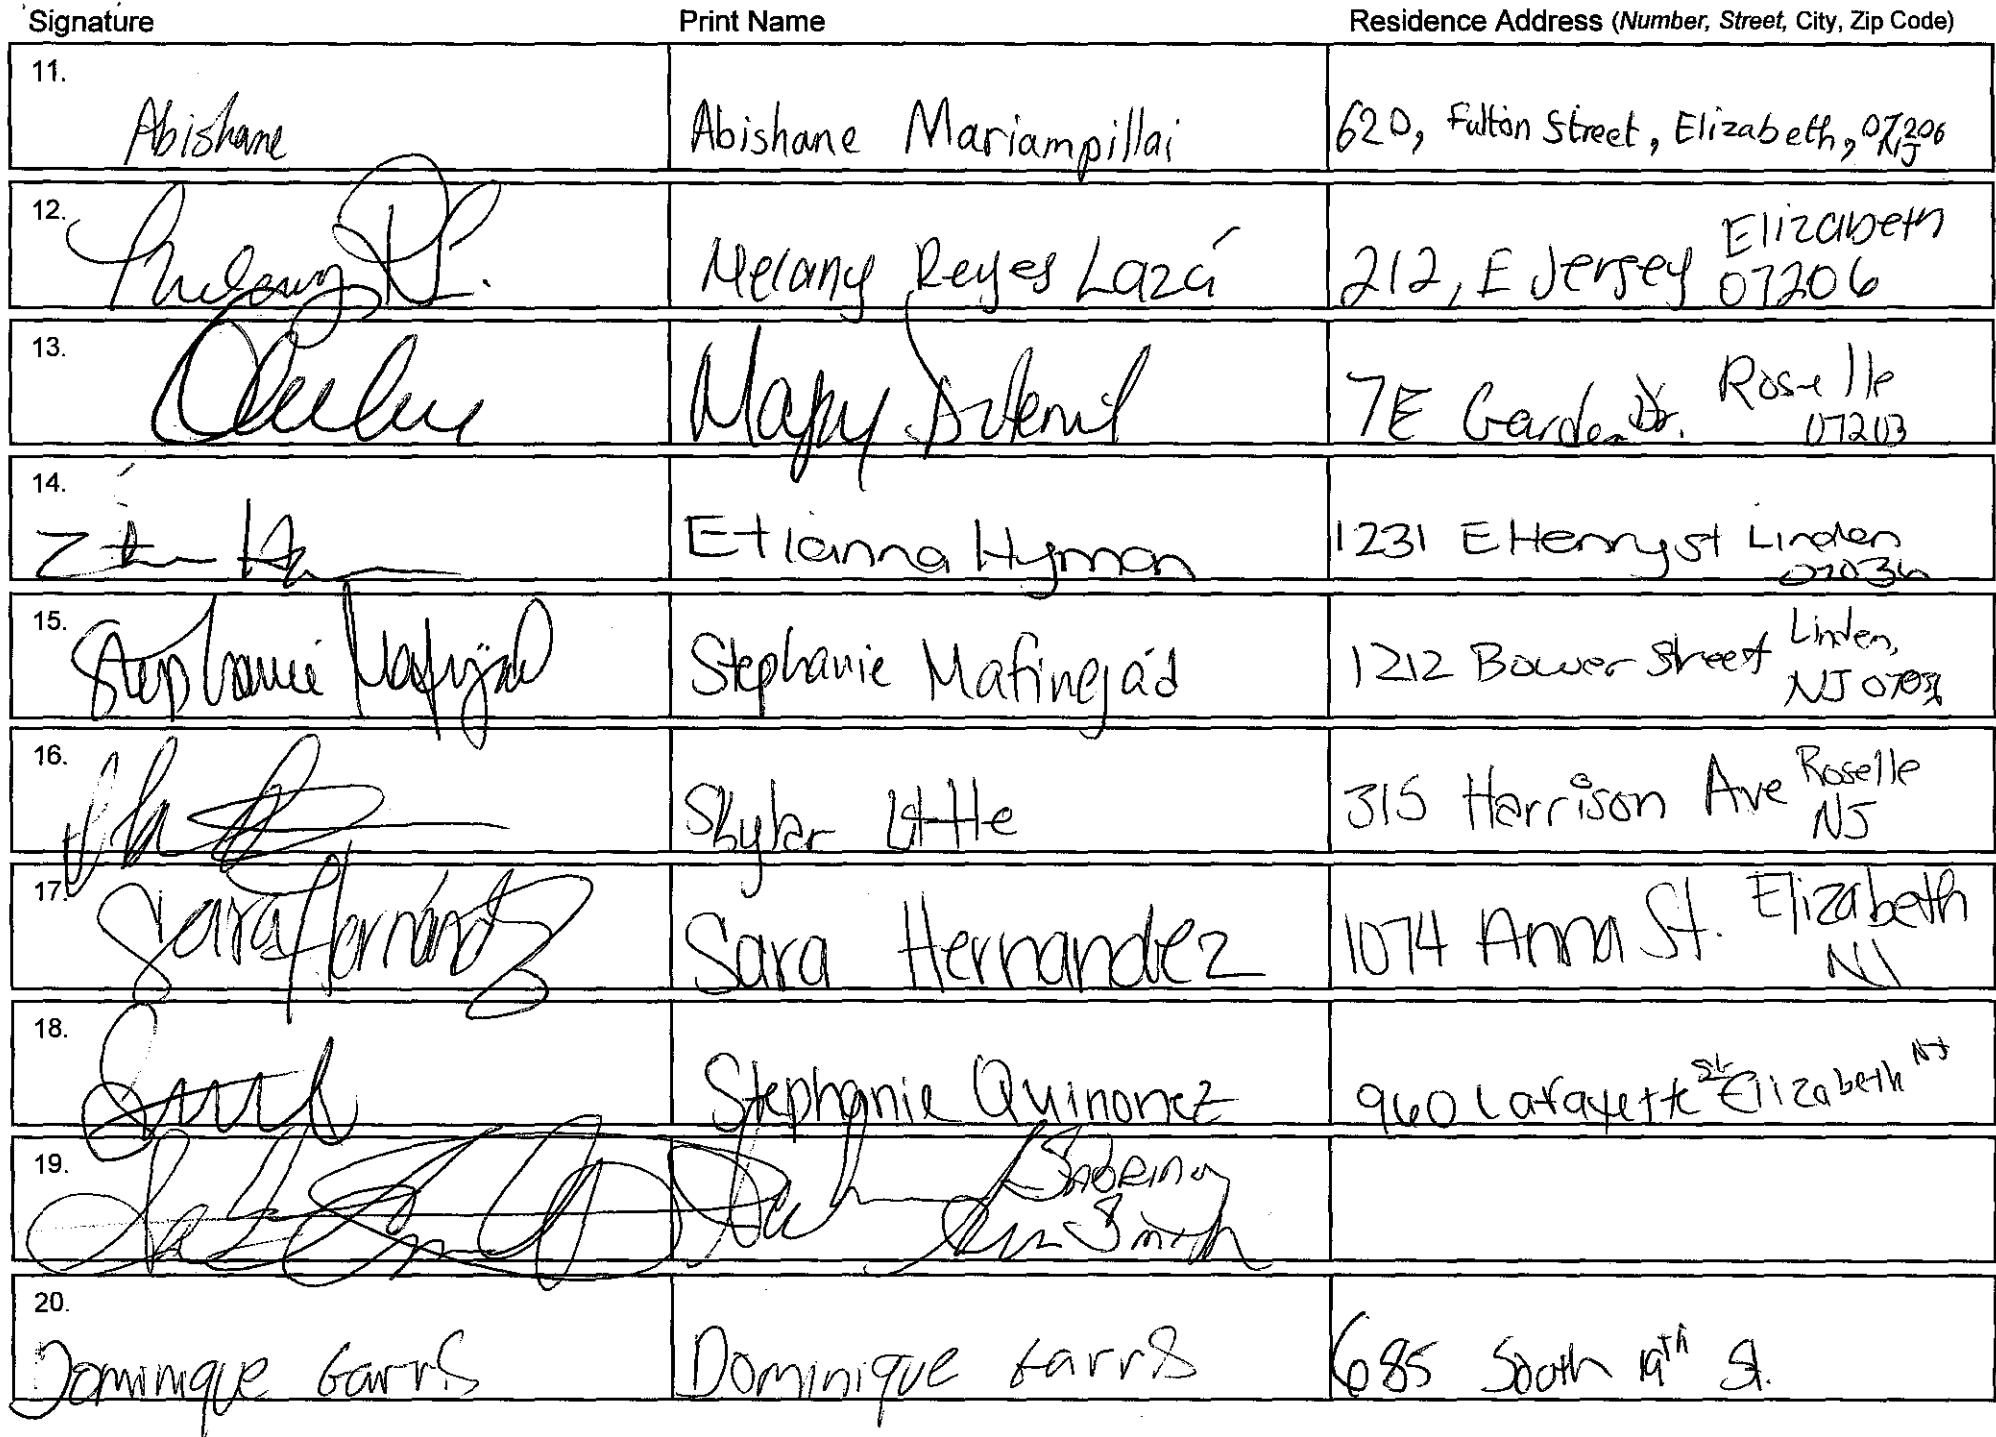 Signature Print Name Residence Address (Number, Street, City, Zip Code)
11.
Abishane Abishane Mariampillai 620, Fulton Street, Elizabeth, 07206
NJ
12. Elizabeth
Melany Reyes Lazá 212, E Jersey 07206
13. Roselle
7E Garden Dr. 07203
14.
Etianna Hyman 1231 E Henry st Linden
07036
15. Linden,
Stephanie Stephanie Mafinejád 1212 Bower Street NJ 07036
16. Roselle
Skylar Little 315 Harrison Ave NJ
17. Elizabeth
Sara Hernández Sara Hernandez 1074 Anna St. NJ
18.
Stephanie Quinonez 960 Lafayette St Elizabeth NJ
19. Sabrina
Smith
20.
Dominique Garris Dominique Garris 685 South 19th St.